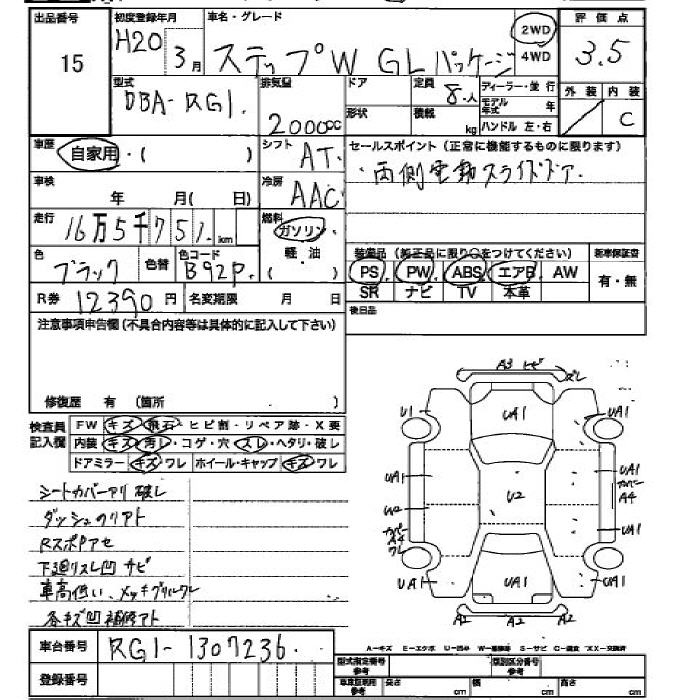 出品番号 初度登録年月 車名・グレード 2WD 評価点
15 H20 3月 ステップW GLパッケージ 4WD 3.5
型式 排気量 ドア 定員 8人 ディーラー・並行 外装 内装
DBA-RG1. 2000cc 形状 積載 kg モデル年式 年 C
ハンドル 左・右
車歴 自家用・( ) シフト AT. セールスポイント (正常に機能するものに限ります)
車検 年 月( 日) 冷房 AAC ・両側電動スライドドア.
走行 16万5千751. km 燃料 ガソリン
軽・油
( )
色 ブラック 色替 色コード B92P. 装備品 (純正品に限り○をつけてください) 新車保証書
PS PW ABS エアB AW 有・無
SR ナビ TV 本革
R券 12390円 名変期限 月 日 後日品
注意事項申告欄 (不具合内容等は具体的に記入して下さい)
修復歴 有 (箇所 )
検査員記入欄 FW キズ・飛石・ヒビ割・リペア跡・X要
内装 キズ・汚レ・コゲ・穴・スレ・ヘタリ・破レ
ドアミラー キズ・ワレ ホイール・キャップ キズ・ワレ
シートカバーアリ 破レ
ダッシュのリアト
Rスポアセ
下廻リスレ凹 サビ
車高低い、メッキグリルワレ
各キズ凹補修アト
A3 ヒビ
ズレ
U1 UA1 UA1
UA1 UA1
カバー
A4
U2 U2
カバー
A4
ワレ UA1
UA1 UA1 UA1
A2 A2 A2
A=キズ E=エクボ U=凹み W=補修跡 S=サビ C=腐食 XX=交換済
車台番号 RG1-1307236.
登録番号
型式指定番号 参考 類別区分番号 参考
車庫証明用 参考 長さ cm 幅 cm 高さ cm